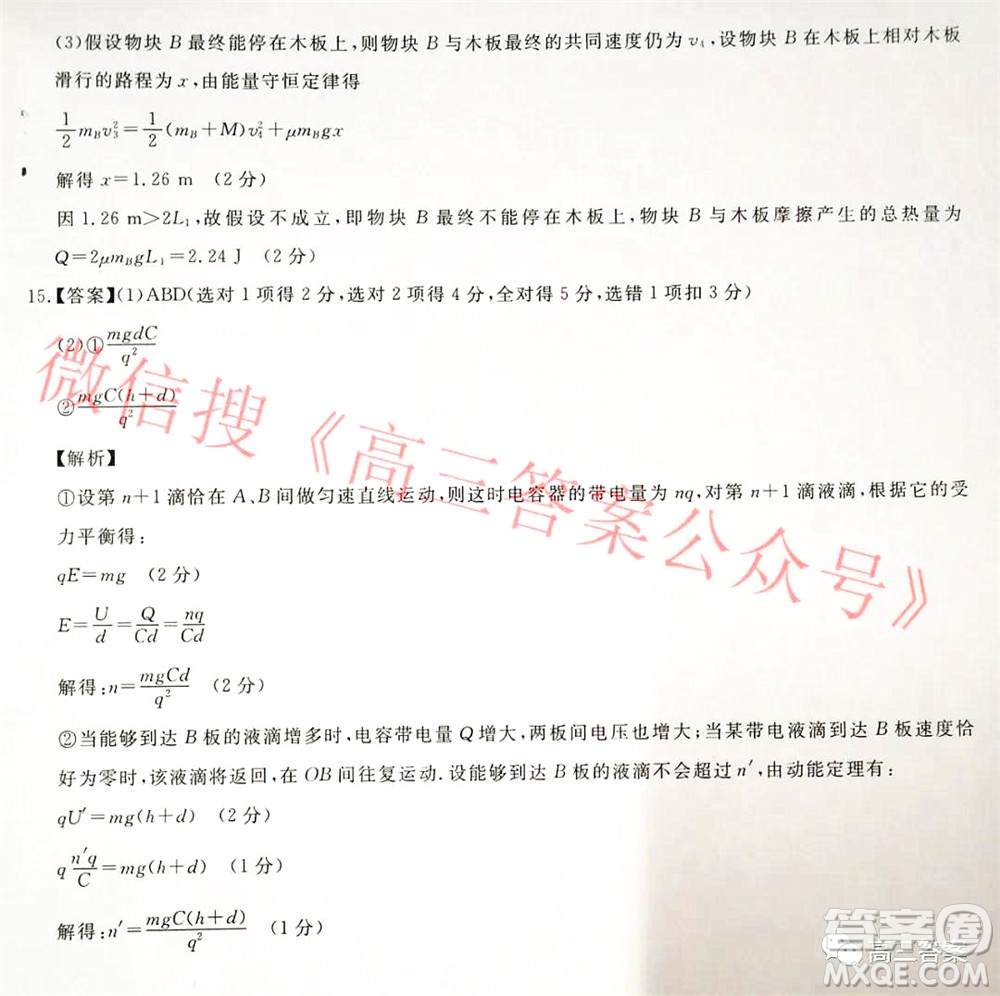 (3)假设物块 B 最终能停在木板上,则物块 B 与木板最终的共同速度仍为 v₄,设物块 B 在木板上相对木板
滑行的路程为 x,由能量守恒定律得
½m_Bv₃²=½(m_B+M)v₄²+μm_Bgx
解得 x=1.26 m (2 分)
因 1.26 m>2L₁,故假设不成立,即物块 B 最终不能停在木板上,物块 B 与木板摩擦产生的总热量为
Q=2μm_BgL₁=2.24 J (2 分)
15.【答案】(1)ABD(选对 1 项得 2 分,选对 2 项得 4 分,全对得 5 分,选错 1 项扣 3 分)
(2)①mgdC/q²
②mgC(h+d)/q²
【解析】
①设第 n+1 滴恰在 A、B 间做匀速直线运动,则这时电容器的带电量为 nq,对第 n+1 滴液滴,根据它的受
力平衡得:
qE=mg (2 分)
E=U/d=Q/Cd=nq/Cd
解得:n=mgCd/q² (2 分)
②当能够到达 B 板的液滴增多时,电容带电量 Q 增大,两板间电压也增大;当某带电液滴到达 B 板速度恰
好为零时,该液滴将返回,在 OB 间往复运动.设能够到达 B 板的液滴不会超过 n′,由动能定理有:
qU′=mg(h+d) (2 分)
q n′q/C=mg(h+d) (1 分)
解得:n′=mgC(h+d)/q² (1 分)
微信搜《高三答案公众号》
答案圈
高三答案
MXQE.COM